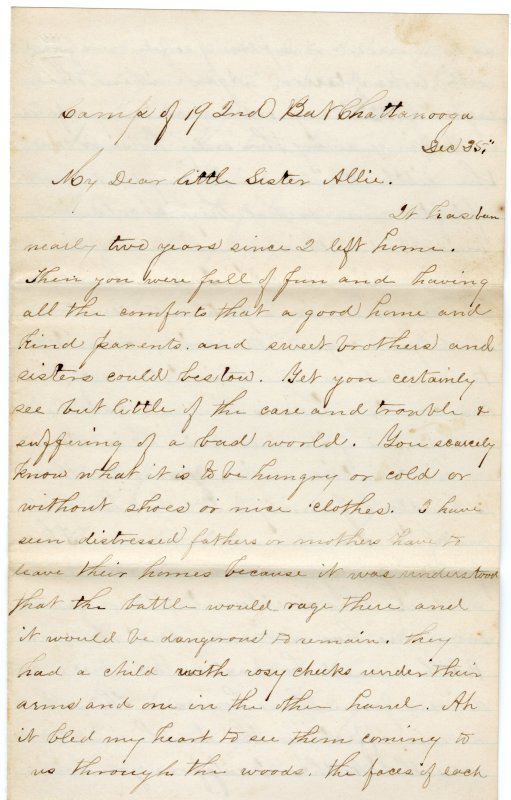 Camp of 19 2nd Bat Chattanooga
Dec 25."
My Dear little Sister Allie.
It has ben
nearly two years since I left home.
Then you were full of fun and having
all the comforts that a good home and
kind parents. and sweet brothers and
sisters could bestow. Yet you certainly
see but little of the care and trouble &
suffering of a bad world. You scarcely
know what it is to be hungry or cold or
without shoes or nice clothes. I have
seen distressed fathers or mothers have to
leave their homes because it was understood
that the battle would rage there and
it would be dangerous to remain. they
had a child with rosy cheeks under their
arms and one in the other hand. Ah
it bled my heart to see them coming to
us through the woods. the faces of each